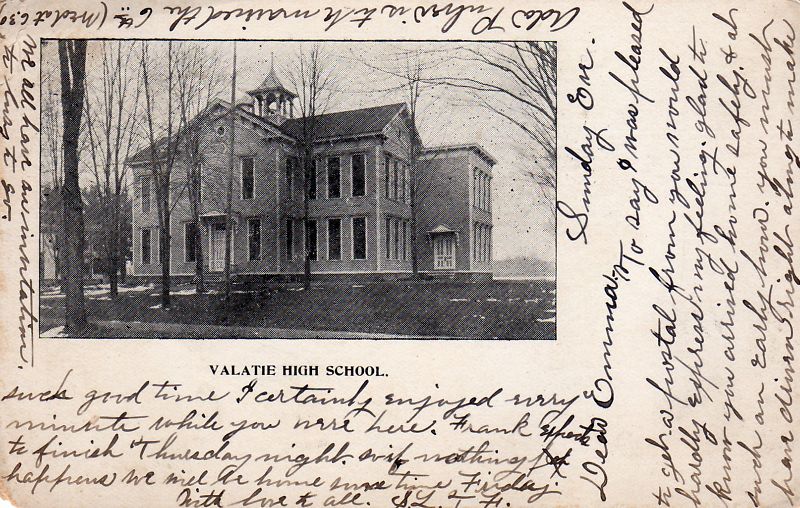 Sunday Eve.
Dear Emma:-
To say I was pleased
to get a postal from you would
hardly express my feeling, glad to
know you arrived home safely, & at
such an early hour. you must
have driven right along to make
such good time I certainly enjoyed every
minute while you were here. Frank expects
to finish Thursday night. so if nothing
happens we will be home some time Friday.
With love to all. S.L. & F.
VALATIE HIGH SCHOOL.
Ada Pulver is to be married the 6th. (Wed at 6.30
We all have an invitation.
to